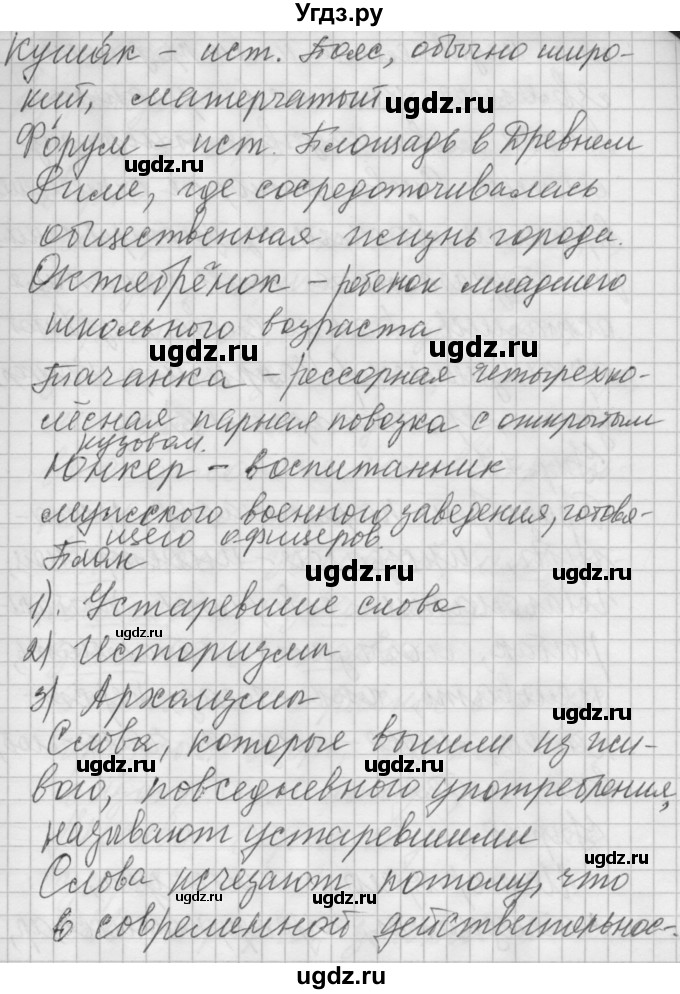 Угдз.ру
Куша́к – ист. Пояс, обычно широ-
кий, матерчатый
ugdz.ru
Фо́рум – ист. Площадь в Древнем
ugdz.ru
Риме, где сосредоточивалась
ugdz.ru
общественная жизнь города.
Октябрёнок – ребёнок младшего
школьного возраста
ugdz.ru
ugdz.ru
Тачанка – рессорная четырехко-
лёсная парная повозка с открытым
кузовом.
Юнкер – воспитанник
мужского военного заведения, готовя-
щего офицеров.
План
ugdz.ru
ugdz.ru
1). Устаревшие слова
ugdz.ru
2) Историзмы
3) Архаизмы
ugdz.ru
Слова, которые вышли из жи-
ugdz.ru
вого, повседневного употребления,
называют устаревшими
ugdz.ru
Слова исчезают потому, что
в современной действительнос-
ugdz.ru
ugdz.ru